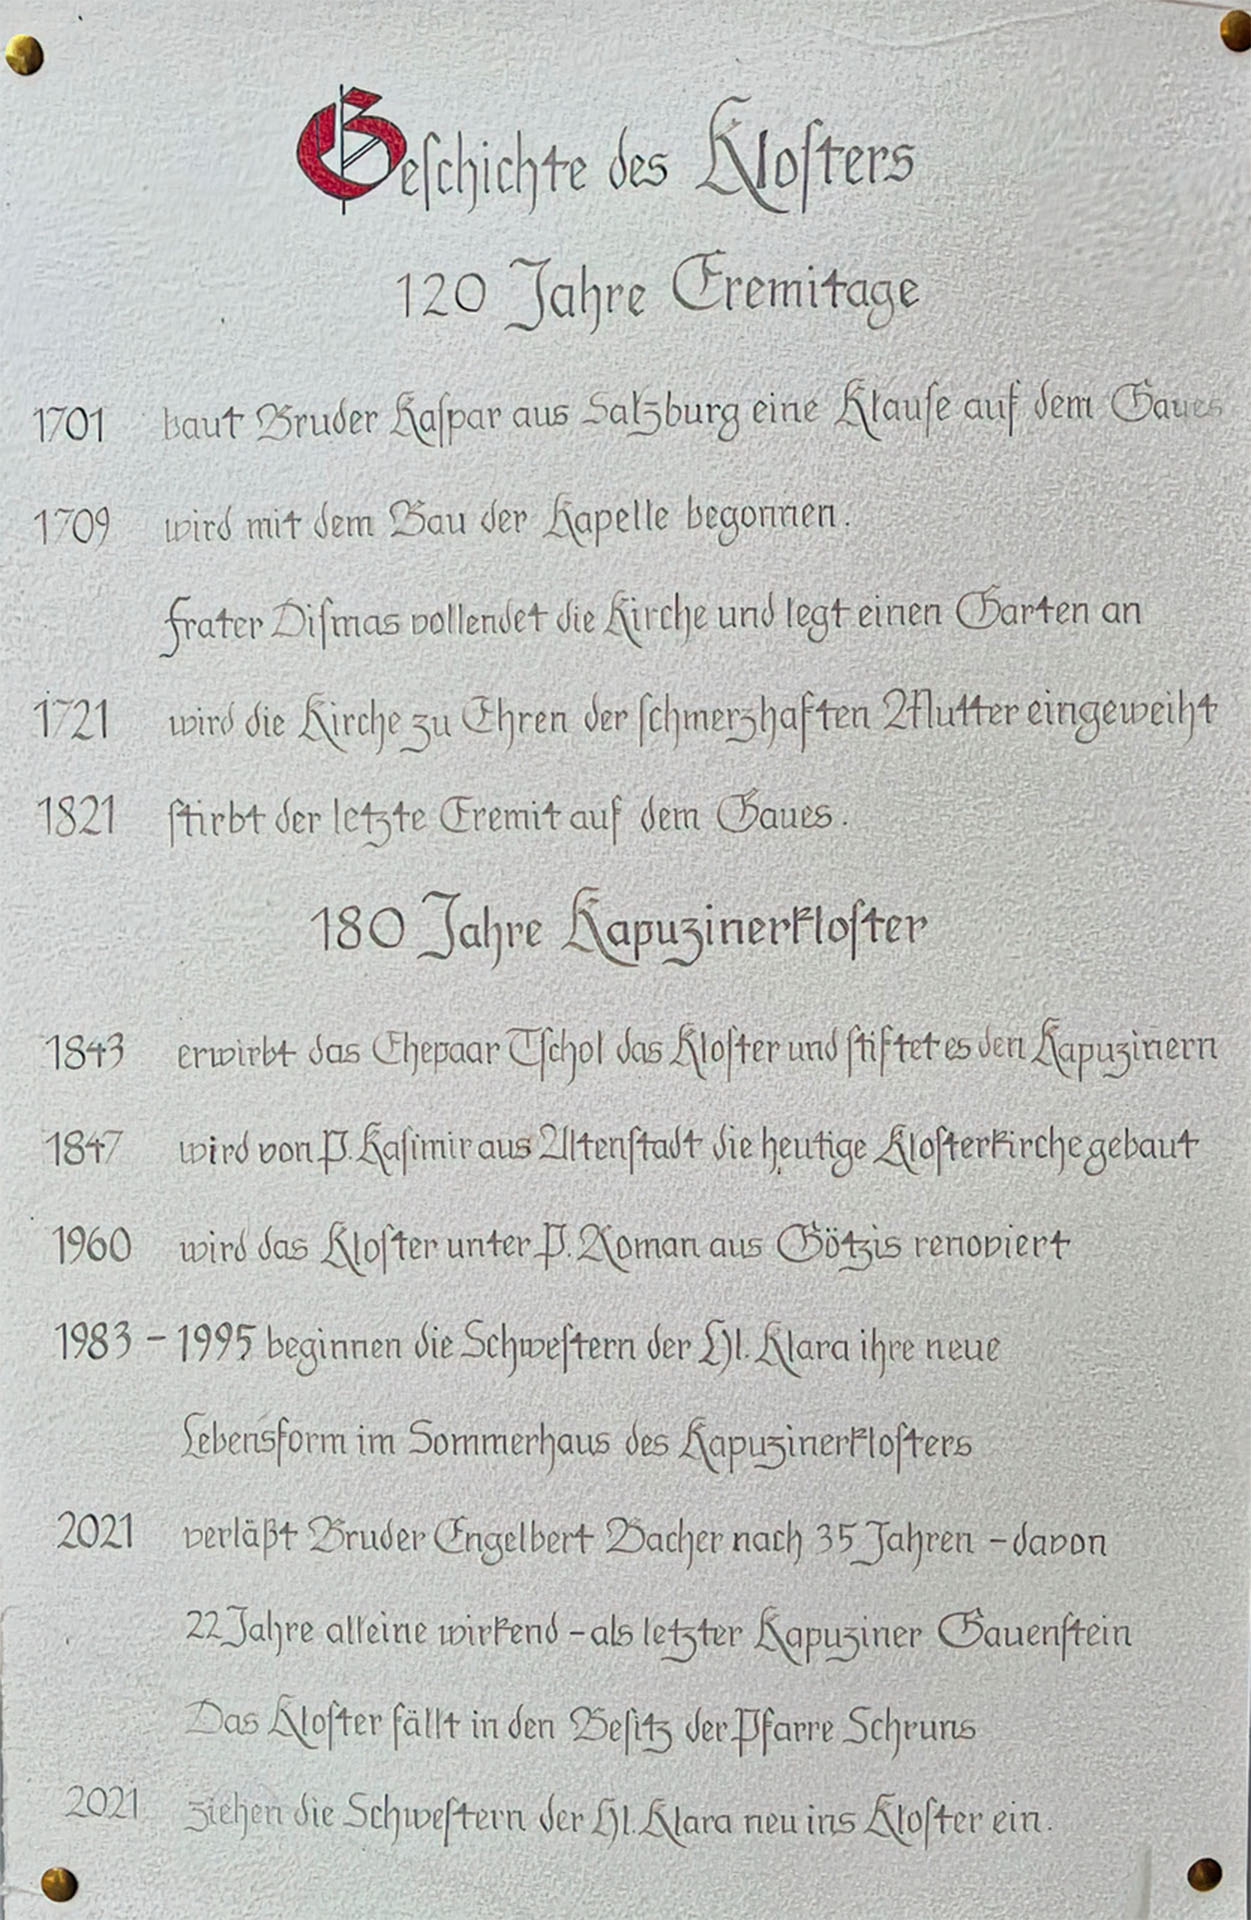 Geschichte des Klosters
120 Jahre Eremitage
1701 baut Bruder Kaspar aus Salzburg eine Klause auf dem Gaues
1709 wird mit dem Bau der Kapelle begonnen.
Frater Dismas vollendet die Kirche und legt einen Garten an
1721 wird die Kirche zu Ehren der schmerzhaften Mutter eingeweiht
1821 stirbt der letzte Eremit auf dem Gaues.
180 Jahre Kapuzinerkloster
1843 erwirbt das Ehepaar Tschol das Kloster und stiftet es den Kapuzinern
1847 wird von P. Kasimir aus Altenstadt die heutige Klosterkirche gebaut
1960 wird das Kloster unter P. Roman aus Götzis renoviert
1983 – 1995 beginnen die Schwestern der Hl. Klara ihre neue
Lebensform im Sommerhaus des Kapuzinerklosters
2021 verläßt Bruder Engelbert Bacher nach 35 Jahren – davon
22 Jahre alleine wirkend – als letzter Kapuziner Gauenstein
Das Kloster fällt in den Besitz der Pfarre Schruns
2021 ziehen die Schwestern der Hl. Klara neu ins Kloster ein.